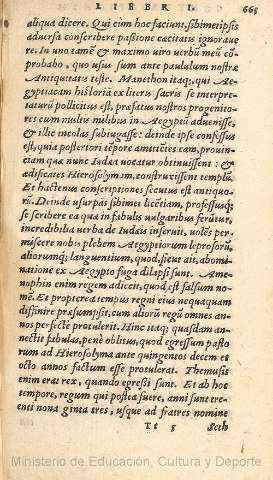 LIBER I. 665
aliqua dicere. Qui cùm hoc faciunt, sibimetipsis
aduersa conscribere passione cæcitatis ignoraue
re. In uno tamẽ & maximo uiro uerbũ meũ cõ
probabo, quo usus sum ante paululum nostræ
Antiquitatis teste. Manethon itaq;, qui Ae-
gyptiacam historiã ex literis sacris se interpre-
taturũ pollicitus est, præfatus nostros progenito
res cum multis milibus in Aegyptũ aduenisse,
& illic incolas subiugasse: deinde ipse confessus
est, quia posteriori tẽpore amittẽtes eam, prouin
ciam quæ nunc Iudæa uocatur obtinuissent: &
ædificates Hierosolymam, construxissent templũ.
Et hactenus conscriptiones secutus est antiquo-
rũ. Deinde usurpãs sibimet licẽtiam, professusq;
se scribere ea quæ in fabulis uulgaribus ferũtur,
incredibilia uerba de Iudæis inseruit, uolẽs per
miscere nobis plebem Aegyptiorum leprosorũ,
aliorumq; languentium, quod, sicut ais, abomi
natione ex Aegypto fuga dilapsi sunt. Ame-
nophin enim regem adiecit, quod est falsum no-
mẽ. Et propterea tempus regni eius nequaquam
diffinire præsumpsit, cum aliorũ regũ omnes an-
nos perfectè protulerit. Hinc itaq; quasdam an-
nectit fabulas, penè oblitus, quod egressum pasto
rum ad Hierosolyma ante quingentos decem et
octo annos factum esse protulerat. Themusis
enim erat rex, quando egressi sunt. Et ab hoc
tempore, regum qui postea fuere, anni sunt tre-
centi nonaginta tres, usque ad fratres nomine
Tt 5 Seth
Ministerio de Educación, Cultura y Deporte